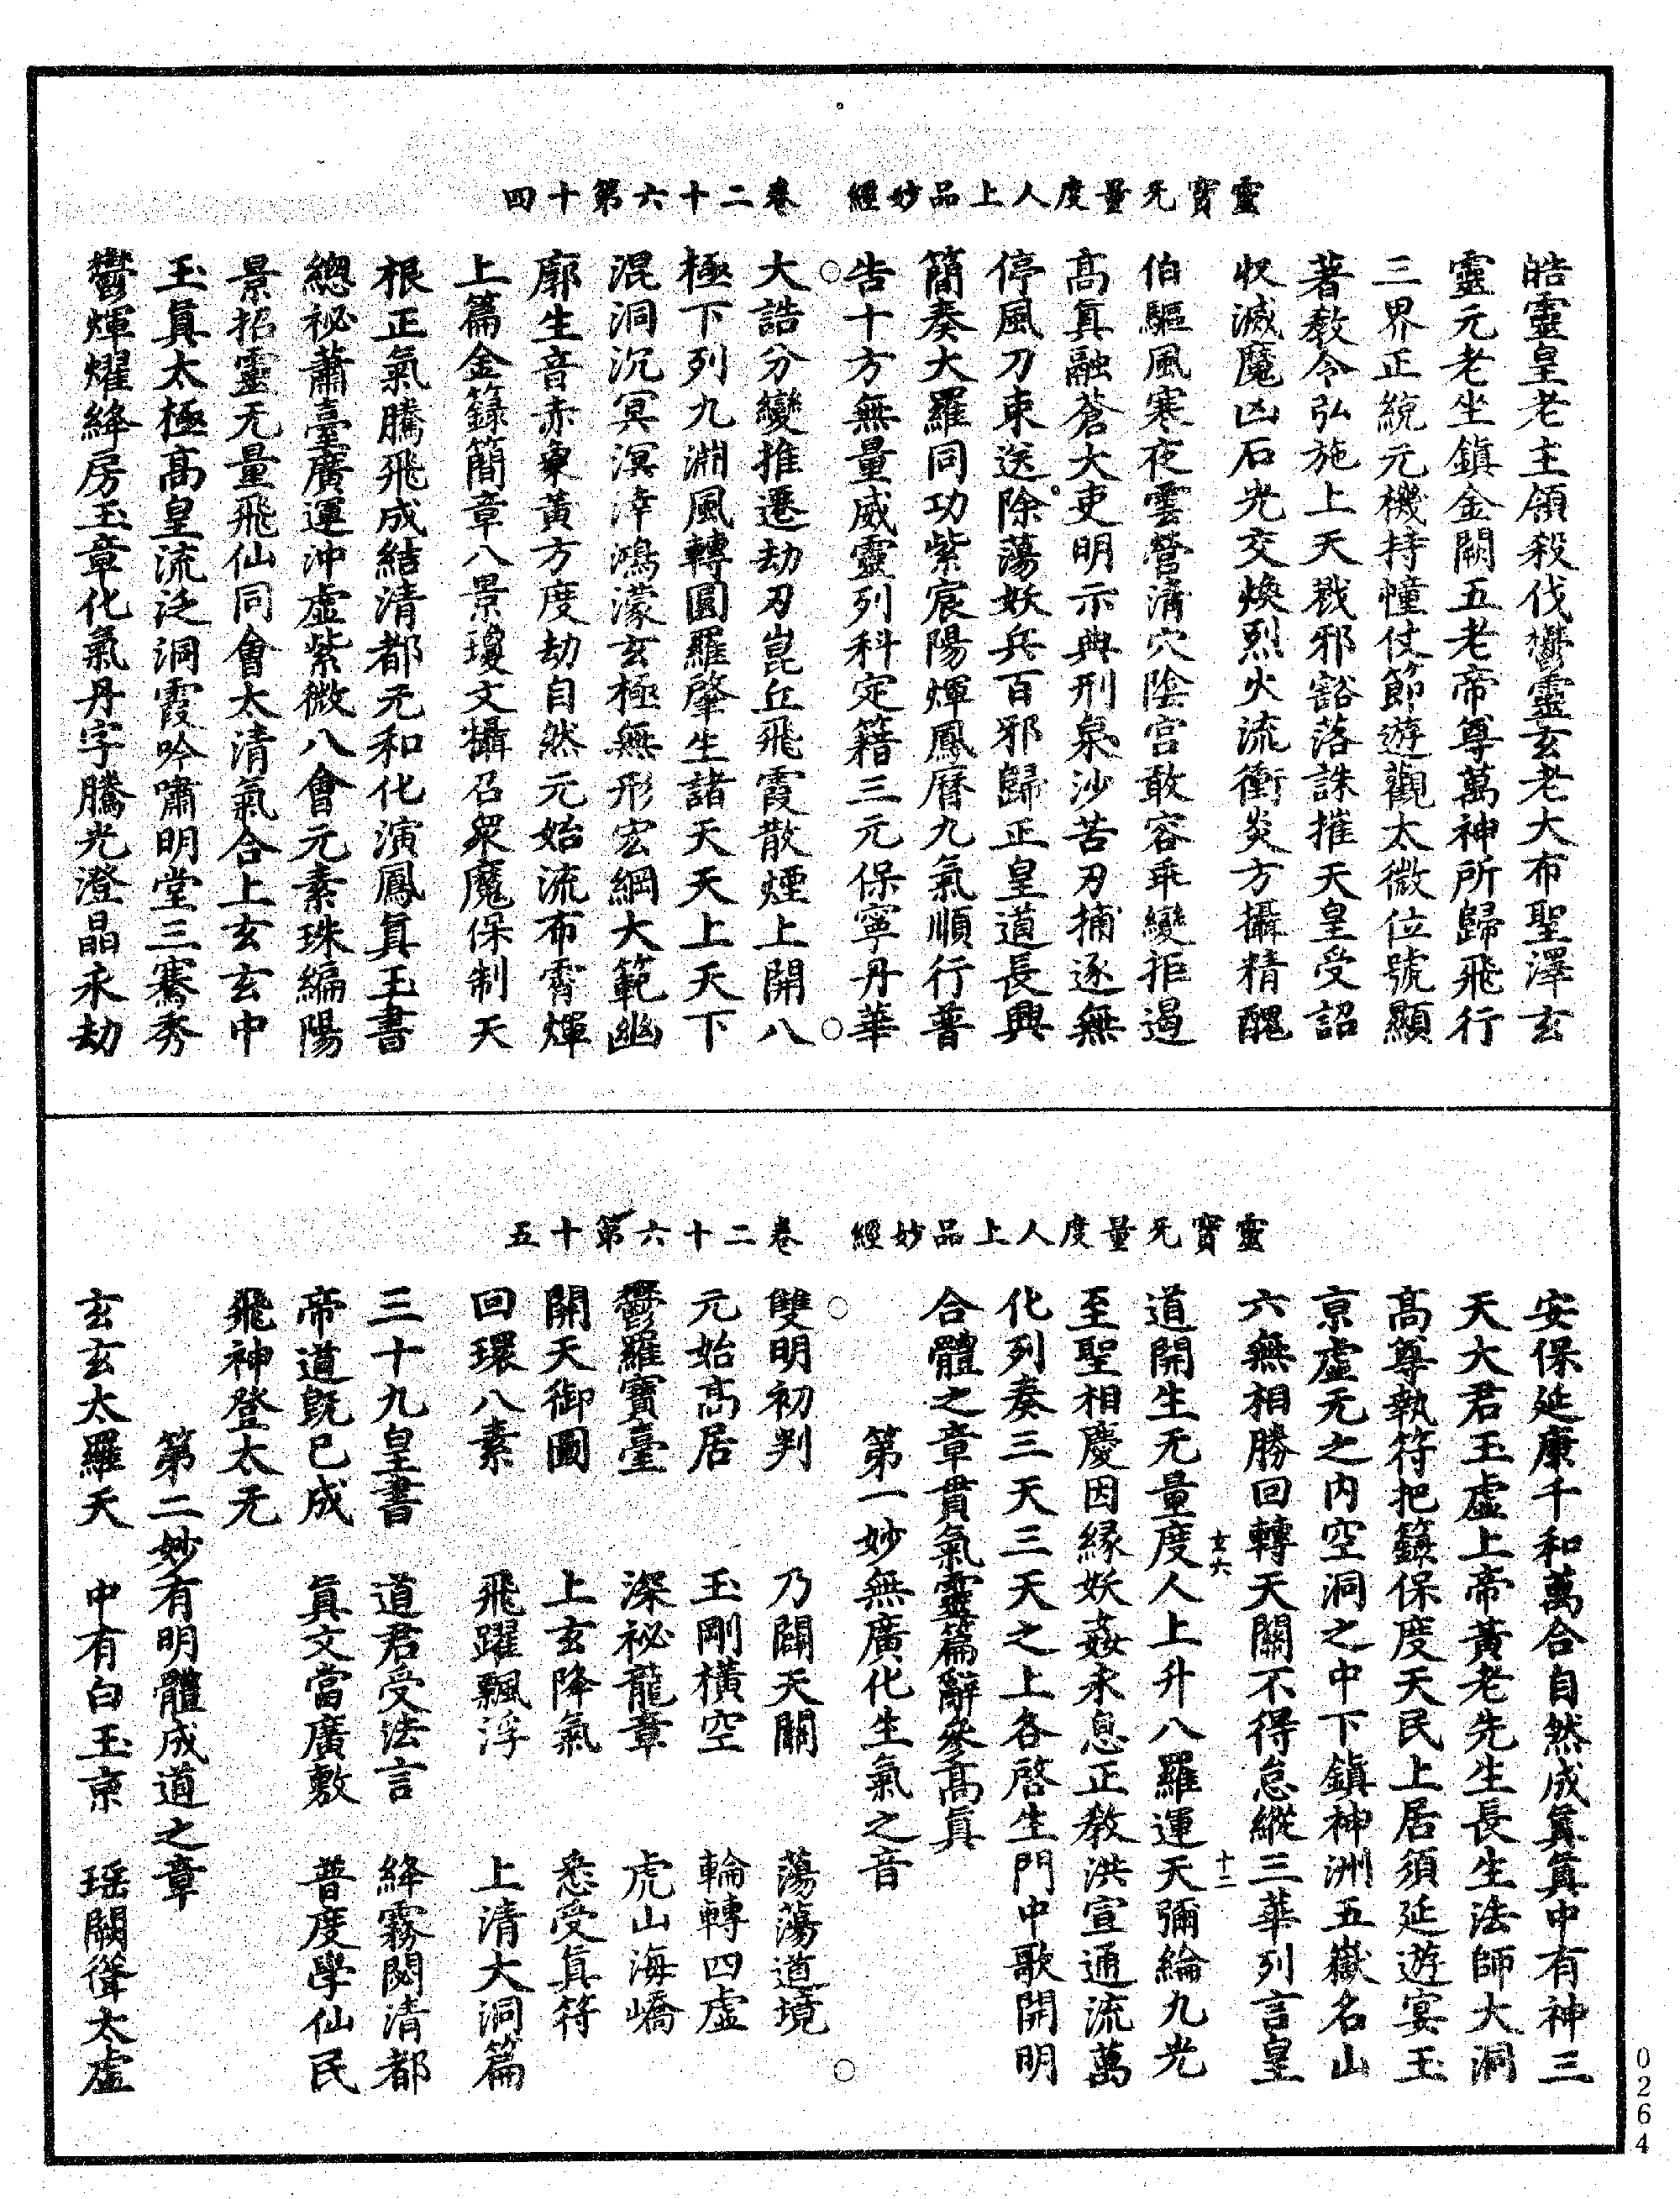 靈寶无量度人上品妙經　卷二十六第十四
皓靈皇老主領殺伐鬱靈玄老大布聖澤玄
靈元老坐鎮金闕五老帝尊萬神所歸飛行
三界正統元機持幢仗節遊觀太微位號顯
著敎令弘施上天戮邪豁落誅摧天皇受詔
収滅魔凶石光交煥烈火流衝炎方攝精醜
伯驅風寒夜雲營清穴陰宮敢容乖變拒遏
高真融蒼大吏明示典刑泉沙苦刃捕逐無
停風刀束送除蕩妖兵百邪歸正皇道長興
簡奏大羅同功紫宸陽煇鳳曆九氣順行普
告十方無量威靈列科定籍三元保寧丹華
大誥分變推遷劫刃崑丘飛霞散煙上開八
極下列九淵風轉圓羅肇生諸天天上天下
混洞沉冥溟涬鴻濛玄極無形宏綱大範幽
廓生音赤東黃方度劫自然元始流布霄煇
上篇金籙簡章八景瓊文攝召眾魔保制天
根正氣騰飛成結清都元和化演鳳真玉書
總祕蕭臺廣運沖虛紫微八會元素珠編陽
景招靈无量飛仙同會太清氣合上玄玄中
玉真太極高皇流泛洞霞吟嘯明堂三騫秀
鬱煇燿絳房玉章化氣丹字騰光澄晶永劫
靈寶无量度人上品妙經　卷二十六第十五
安保延康千和萬合自然成真真中有神三
天大君玉虛上帝黃老先生長生法師大洞
高尊執符把籙保度天民上居須延遊宴玉
京虛无之内空洞之中下鎮神洲五嶽名山
六無相勝回轉天關不得怠縱三華列言皇
玄六　十二
道開生无量度人上升八羅運天彌綸九光
至聖相慶因緣妖姦永息正敎洪宣通流萬
化列奏三天三天之上各啓生門中歌開明
合體之章貫氣靈篇辭參高真
第一妙無廣化生氣之音
雙明初判　乃闢天關　蕩蕩道境
元始高居　玉剛橫空　輪轉四虛
鬱羅寶臺　深祕龍章　虎山海嶠
開天御圖　上玄降氣　悉受真符
回環八素　飛躍飄浮　上清大洞篇
三十九皇書　道君受法言　絳霧閟清都
帝道旣已成　真文當廣敷　普度學仙民
飛神登太无
第二妙有明體成道之章
玄玄太羅天　中有白玉京　瑶闕聳太虛
0264